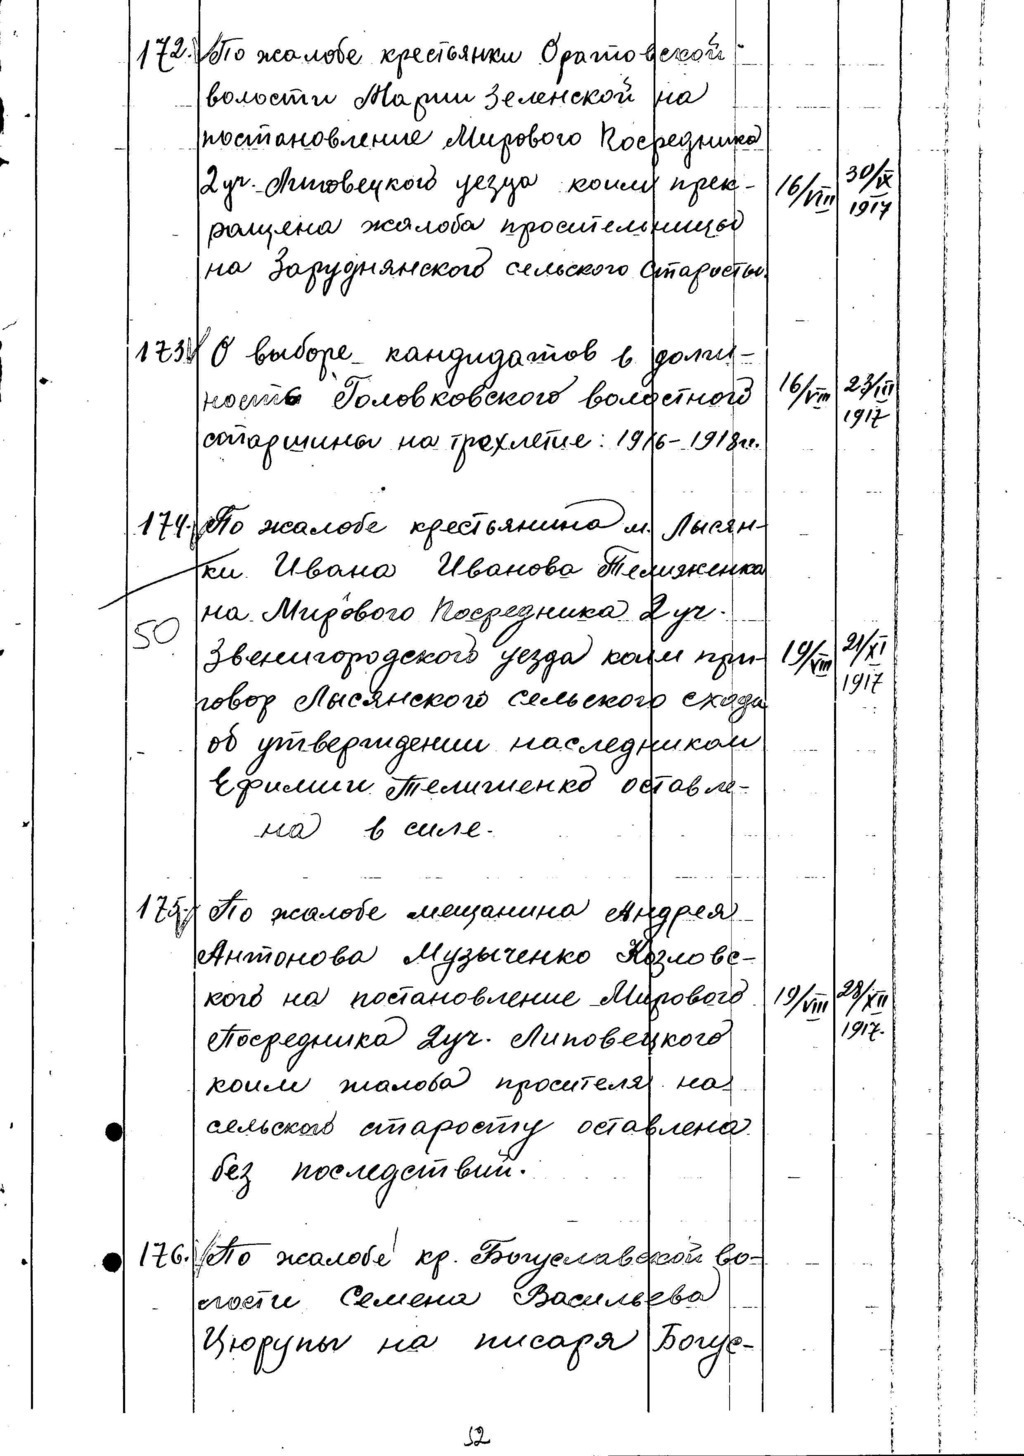 172. По жалобе крестьянки Оратовской
волости Марии Зеленской на
постановление Мирового Посредника
2 уч. Липовецкого уезда коим прек-
ращена жалоба просительницы
на Заруднянского сельского Старосты.
16/VIII 30/IX 1917
173. О выборе кандидатов в долж-
ность Головковского волостного
старшины на трехлетие: 1916-1918 гг.
16/VIII 23/III 1917
174. По жалобе крестьянина м. Лысян-
ки Ивана Иванова Телиженка
на Мирового Посредника 2 уч.
50
Звенигородского уезда коим при-
говор Лысянского сельского схода
об утверждении наследником
Ефимии Телиженко оставле-
на в силе.
19/VIII 21/XI 1917
175. По жалобе мещанина Андрея
Антонова Музыченко Козловс-
кого на постановление Мирового
Посредника 2 уч. Липовецкого
коим жалоба просителя на
сельского старосту оставлена
без последствий.
19/VIII 28/XII 1917.
176. По жалобе кр. Богуславской во-
лости Семена Васильева
Цюрупы на писаря Богус-
52